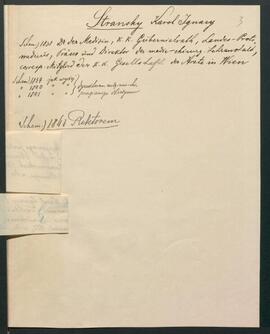 Stransky Karol Ignacy
3
Schem) 1838 Dr der Medizin, k. k. Gubernialrath, Landes-Proto-
medicus, Präses und Direktor der medic-chirurg. Lehranstalt,
corresp. Mitglied der k. k. Gesellschaft der Ärzte in Wien
Schem) 1839 jak wyżej
" 1840 " "
" 1841 " "
Schem) 1841 Rektorem